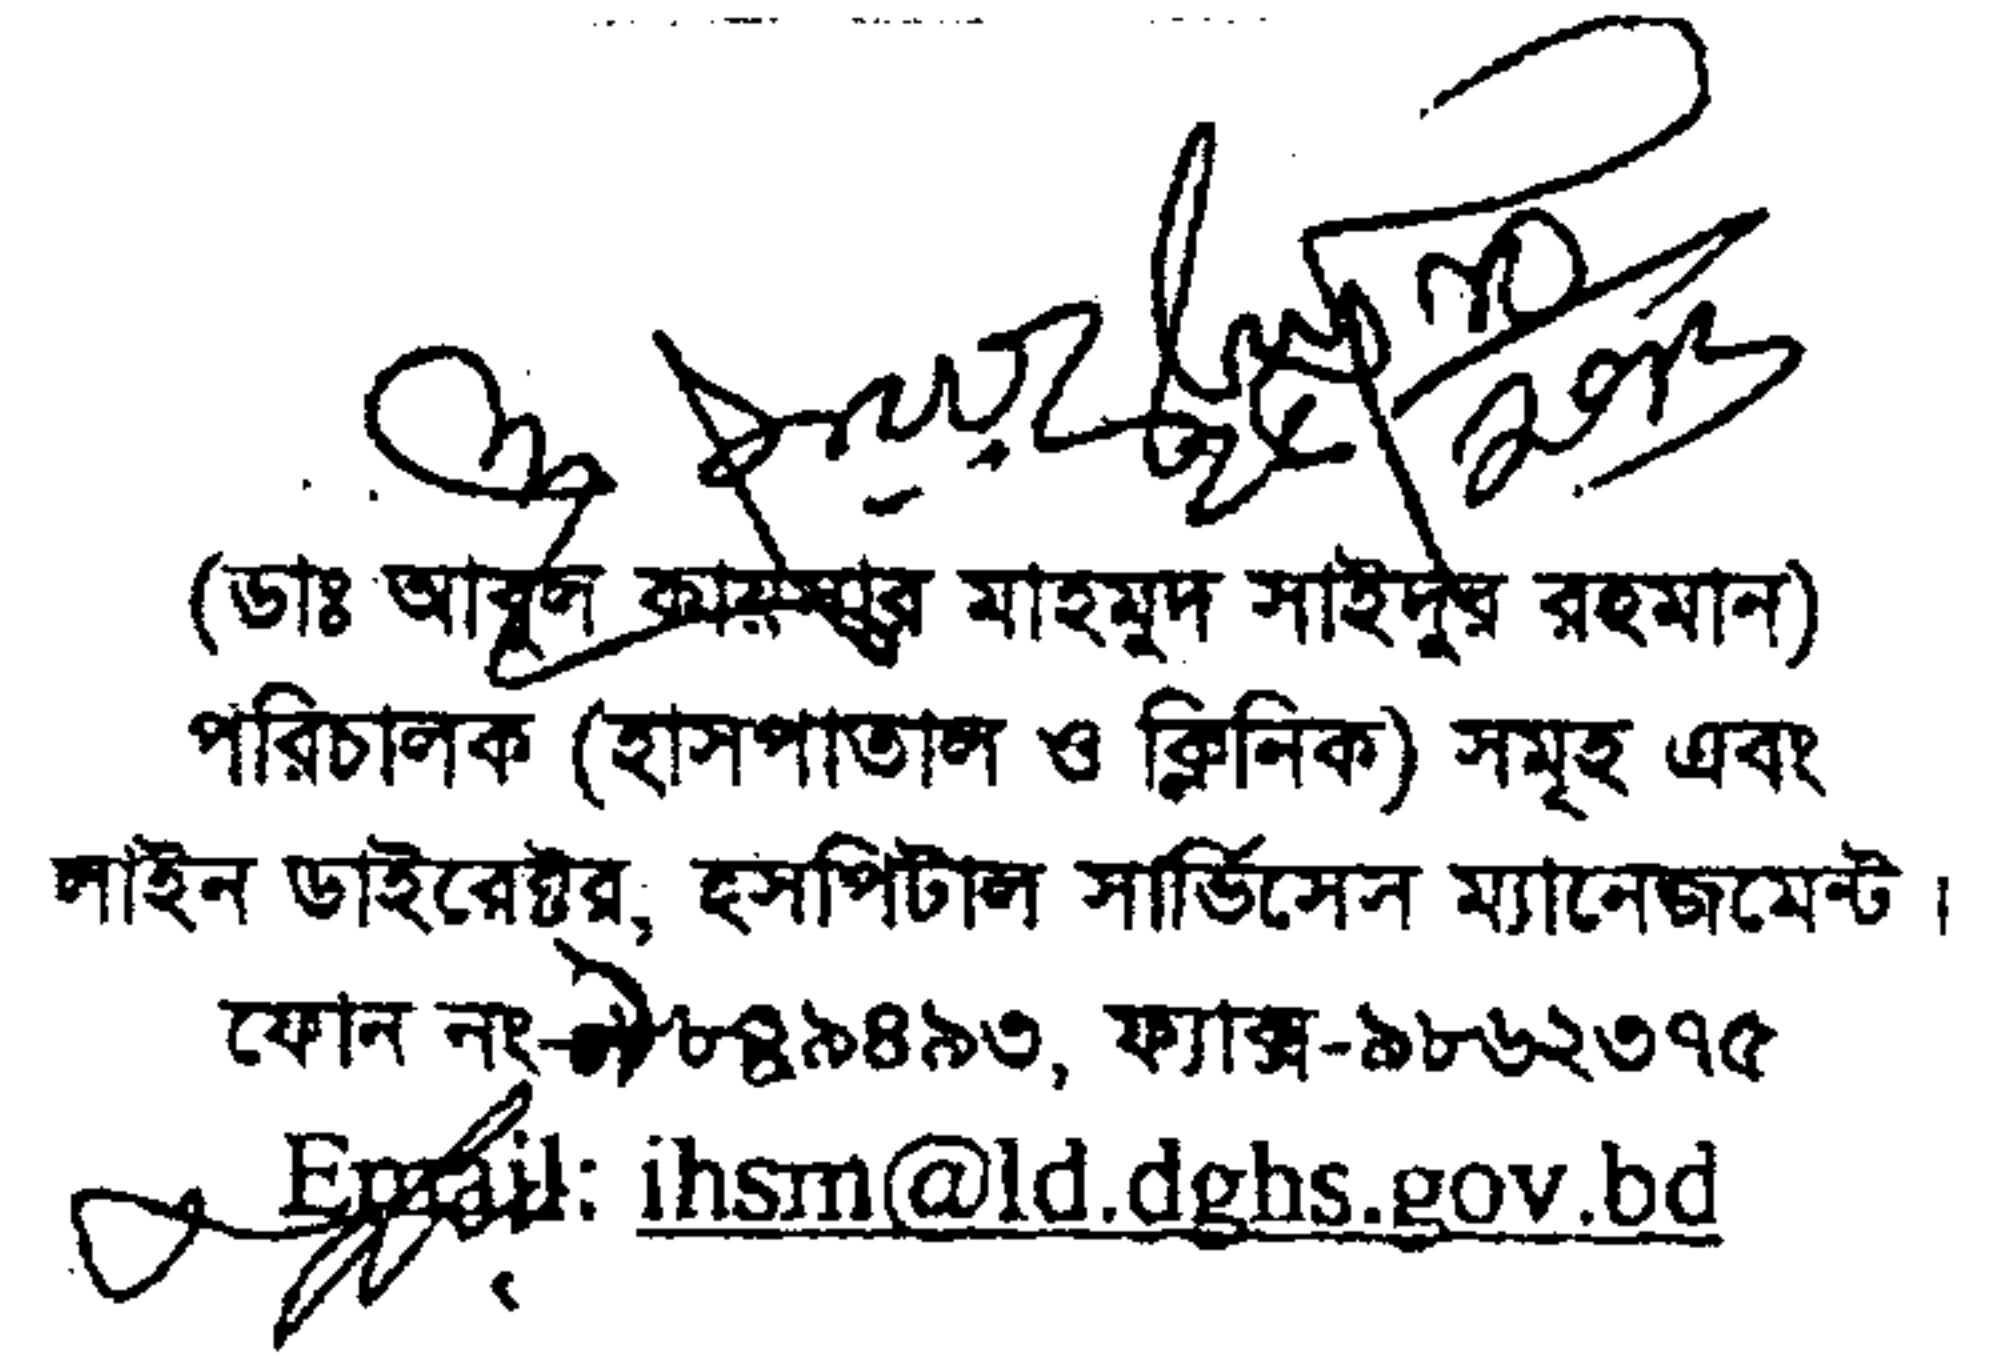 (ডাঃ আবুল কায়সার মাহমুদ সাইদুর রহমান)
পরিচালক (হাসপাতাল ও ক্লিনিক) সমূহ এবং
লাইন ডাইরেক্টর, হসপিটাল সার্ভিসেস ম্যানেজমেন্ট ।
ফোন নং- ফ্যাক্স-৯৮৬২৩৭৫
Email: ihsm@ld.dghs.gov.bd